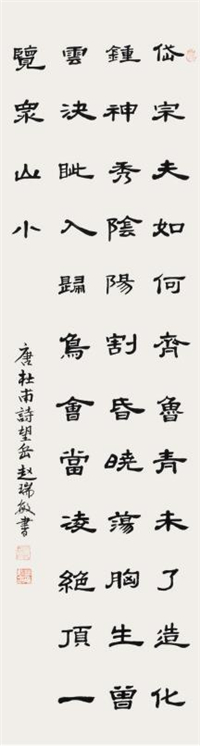 岱宗夫如何齊魯青未了造化
鍾神秀陰陽割昏曉蕩胸生曾
雲決眦入歸鳥會當凌絕頂一
覽衆山小
唐杜甫詩望岳赵瑞敏書